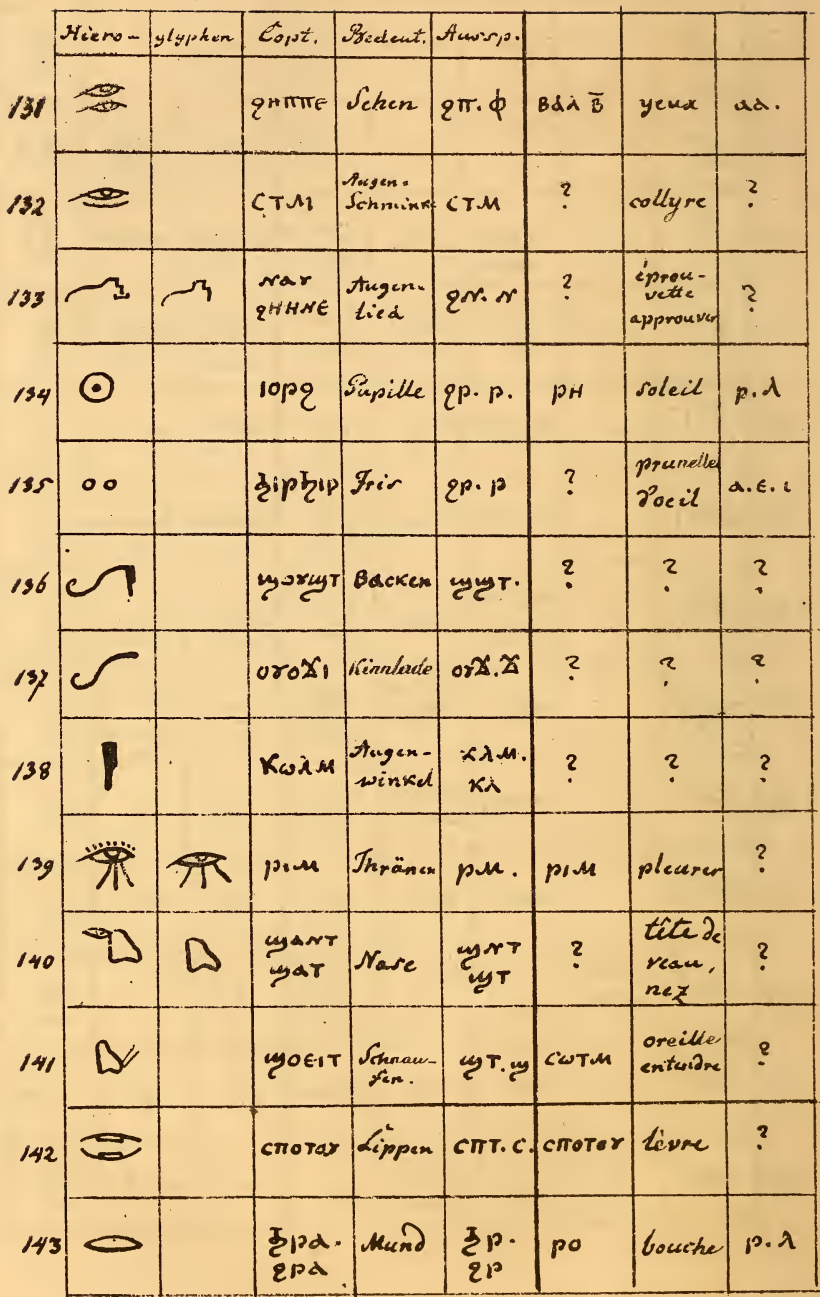 Hiero- glyphen Copt. Bedeut. Aussp.
131 ϩⲏⲡⲡⲉ Sehen ϩⲡ. ⲫ ⲃⲁⲗ ⲃ̄ yeux ⲁⲁ.
132 ⲥⲧⲙ Augen-Schminke ⲥⲧⲙ ? collyre ?
133 ⲛⲁⲩ ϩⲏⲏⲛⲉ Augen-lied ϩⲛ. ⲛ ? éprou-vette approuver ?
134 ⲓⲟⲣϩ Pupille ϩⲣ. ⲣ. ⲣⲏ soleil ⲣ. ⲗ
135 ϧⲓⲣϧⲓⲣ Iris ϩⲣ. ⲣ ? prunelle d'oeil ⲁ. ⲉ. ⲓ
136 ϣⲟⲩϣⲧ Backen ϣϣⲧ. ? ? ?
137 ⲟⲩⲟϫⲓ Kinnlade ⲟⲩϫ. ϫ ? ? ?
138 ⲕⲱⲗⲙ Augen-winkel ⲕⲗⲙ. ⲕⲗ ? ? ?
139 ⲣⲓⲙ Thränen ⲣⲙ. ⲣⲓⲙ pleurer ?
140 ϣⲁⲛⲧ ϣⲁⲧ Nase ϣⲛⲧ ϣⲧ ? tête de veau, nez ?
141 ϣⲟⲉⲓⲧ Schnau-fen. ϣⲧ. ϣ ⲥⲱⲧⲙ oreille entendre ?
142 ⲥⲡⲟⲧⲟⲩ Lippen ⲥⲡⲧ. ⲥ. ⲥⲡⲟⲧⲟⲩ lèvre ?
143 ϧⲣⲁ. ϩⲣⲁ Mund ϧⲣ. ϩⲣ ⲣⲟ bouche ⲣ. ⲗ